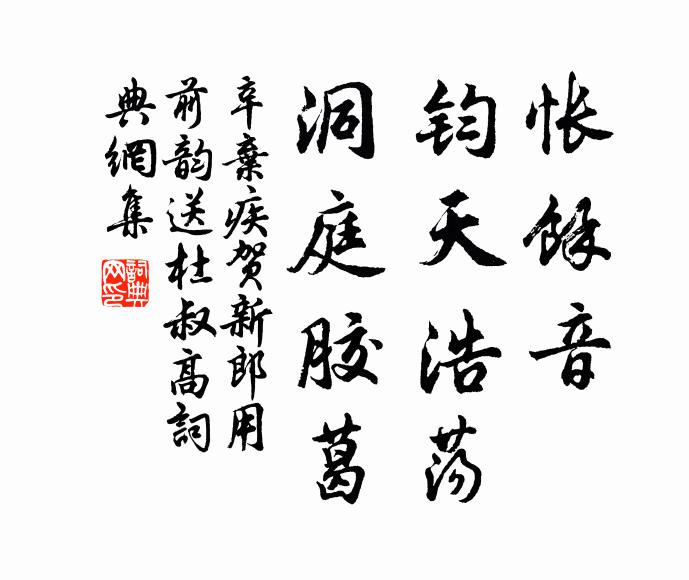 怅餘音
钧天浩荡
洞庭胶葛
辛棄疾贺新郎用
前韵送杜叔高詞
典網集
詞典
网印